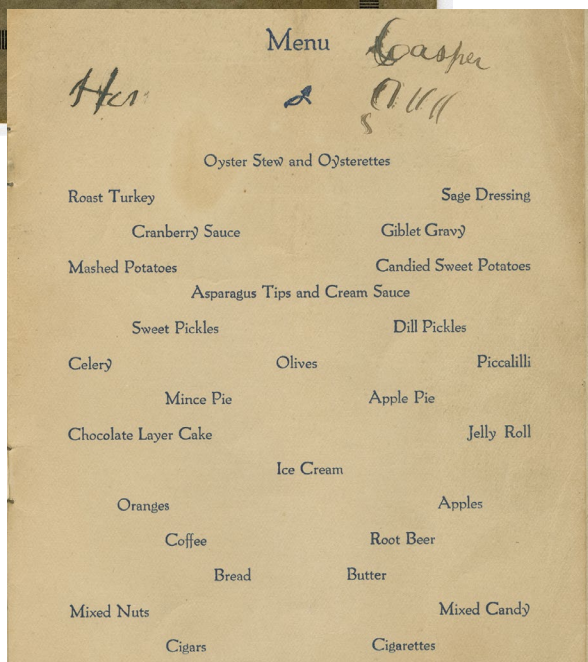 Menu Casper
Oyster Stew and Oysterettes
Roast Turkey Sage Dressing
Cranberry Sauce Giblet Gravy
Mashed Potatoes Candied Sweet Potatoes
Asparagus Tips and Cream Sauce
Sweet Pickles Dill Pickles
Celery Olives Piccalilli
Mince Pie Apple Pie
Chocolate Layer Cake Jelly Roll
Ice Cream
Oranges Apples
Coffee Root Beer
Bread Butter
Mixed Nuts Mixed Candy
Cigars Cigarettes